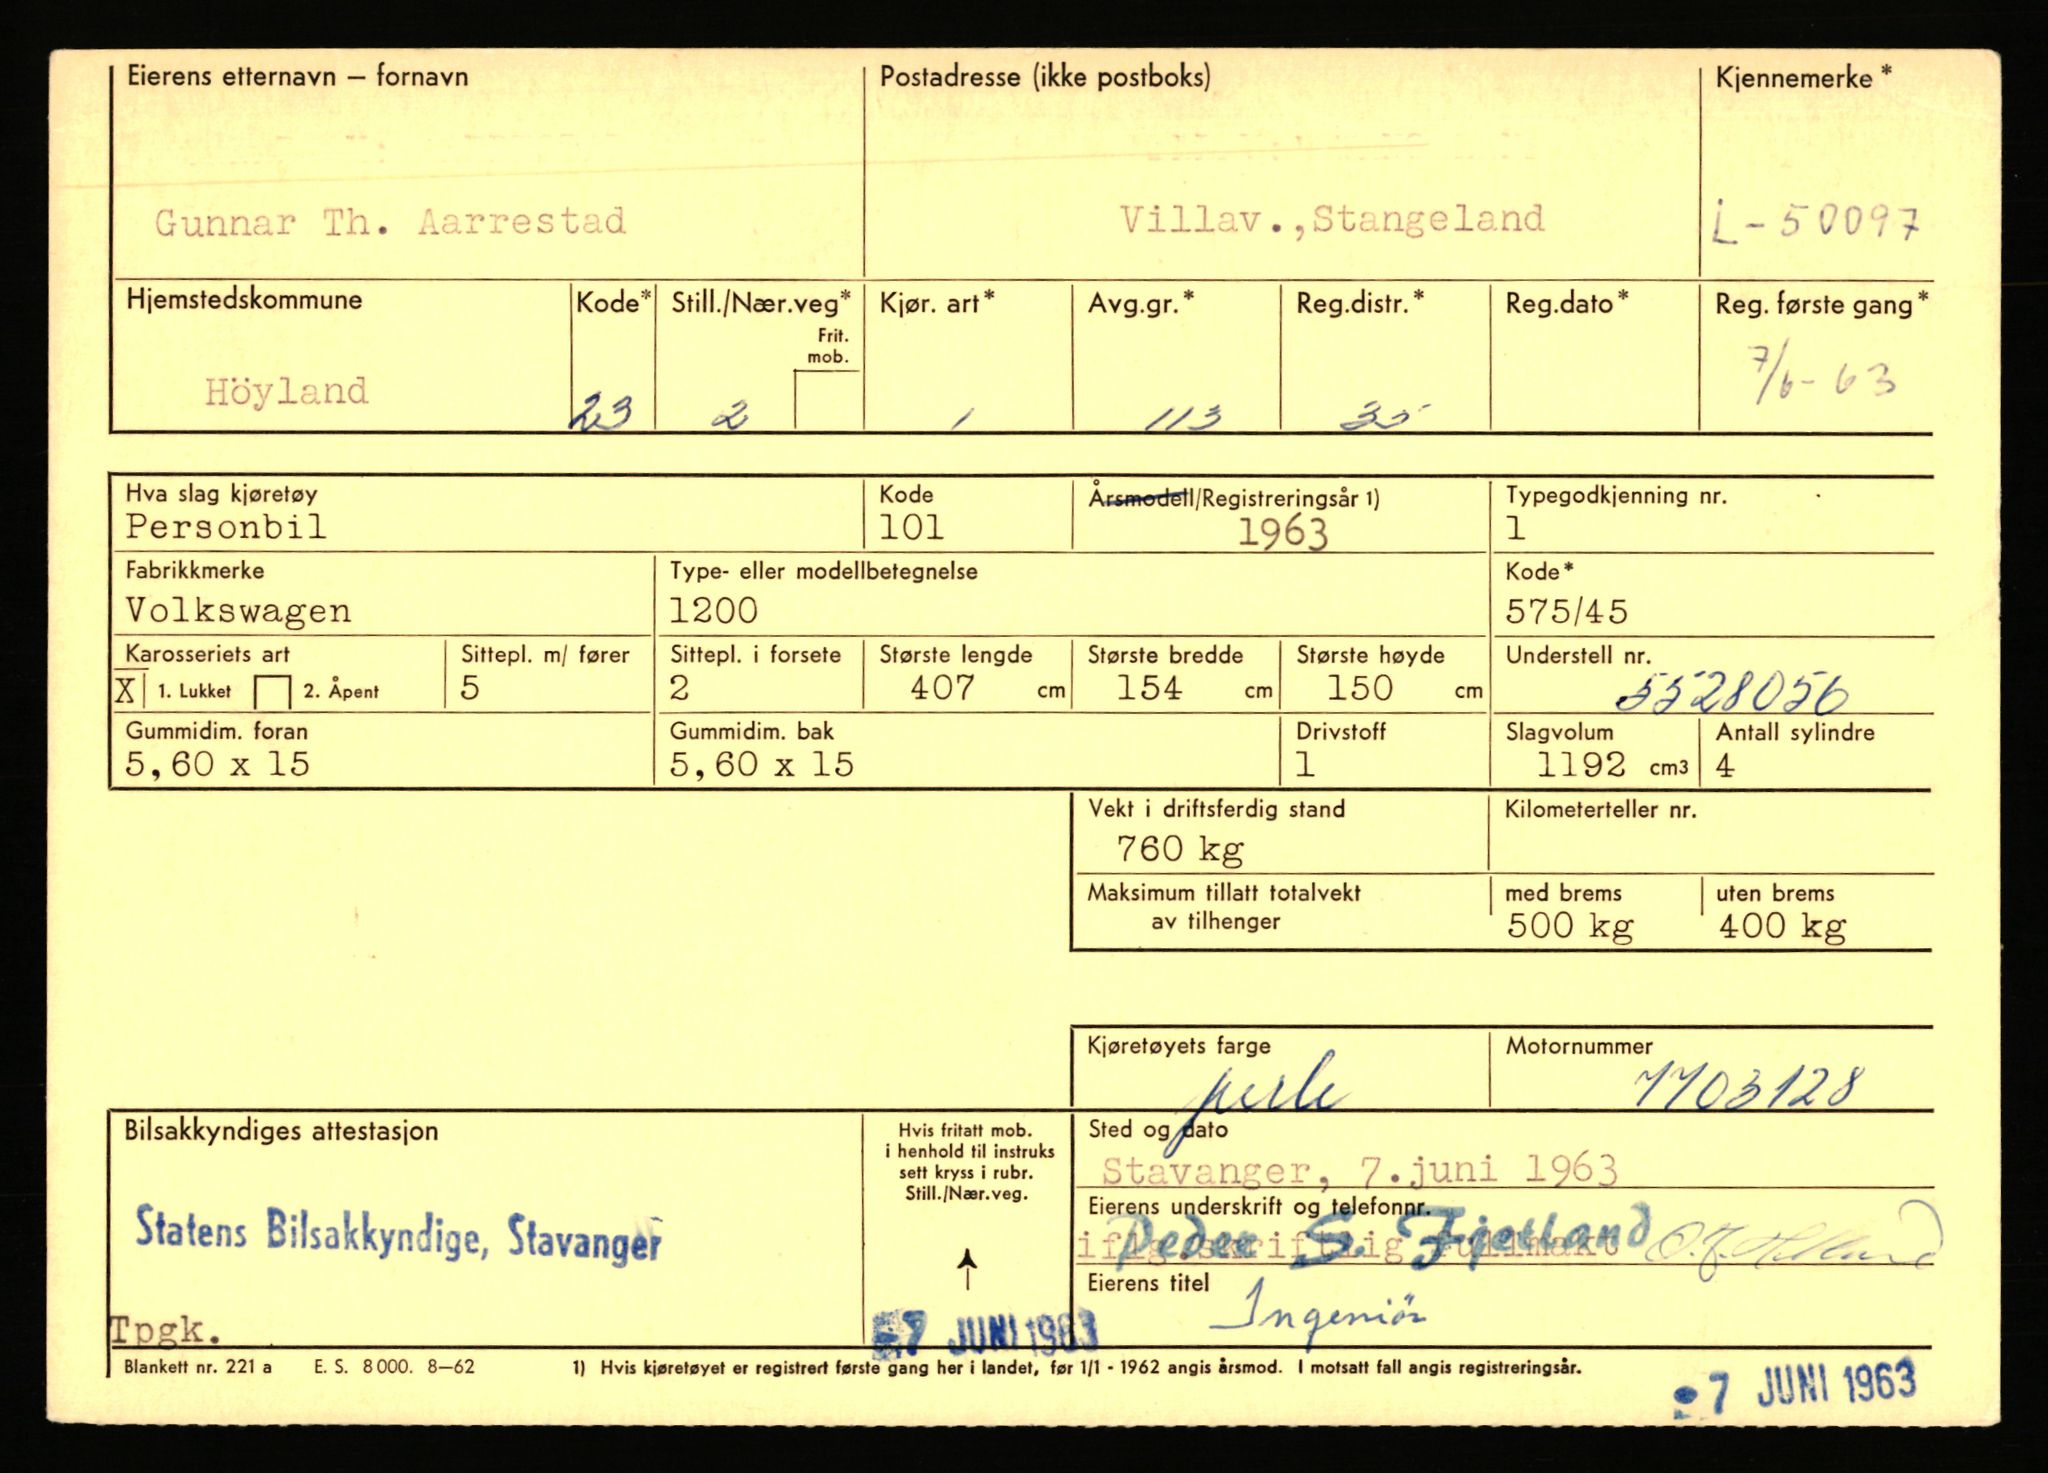 Eierens etternavn – fornavn
Postadresse (ikke postboks)
Kjennemerke*
Gunnar Th. Aarrestad
Villav.,Stangeland
L-50097
Hjemstedskommune
Kode*
Still./Nær.veg*
Frit.
mob.
Kjør. art*
Avg.gr.*
Reg.distr.*
Reg.dato*
Reg. første gang*
Höyland
23
2
1
113
35
7/6-63
Hva slag kjøretøy
Kode
Årsmodell/Registreringsår 1)
Typegodkjenning nr.
Personbil
101
1963
1
Fabrikkmerke
Type- eller modellbetegnelse
Kode*
Volkswagen
1200
575/45
Karosseriets art
Sittepl. m/ fører
Sittepl. i forsete
Største lengde
Største bredde
Største høyde
Understell nr.
X 1. Lukket 2. Åpent
5
2
407 cm
154 cm
150 cm
5528056
Gummidim. foran
Gummidim. bak
Drivstoff
Slagvolum
Antall sylindre
5,60 x 15
5,60 x 15
1
1192 cm3
4
Vekt i driftsferdig stand
Kilometerteller nr.
760 kg
Maksimum tillatt totalvekt
av tilhenger
med brems
uten brems
500 kg
400 kg
Kjøretøyets farge
Motornummer
perle
7703128
Bilsakkyndiges attestasjon
Hvis fritatt mob.
i henhold til instruks
sett kryss i rubr.
Still./Nær.veg.
Sted og dato
Stavanger, 7.juni 1963
Eierens underskrift og telefonnr.
Statens Bilsakkyndige, Stavanger
Peder S. Fjelland
iflg. skriftlig fullmakt
Eierens titel
Ingeniör
Tpgk.
7 JUNI 1963
Blankett nr. 221 a E. S. 8000. 8–62
1) Hvis kjøretøyet er registrert første gang her i landet, før 1/1 - 1962 angis årsmod. I motsatt fall angis registreringsår.
7 JUNI 1963